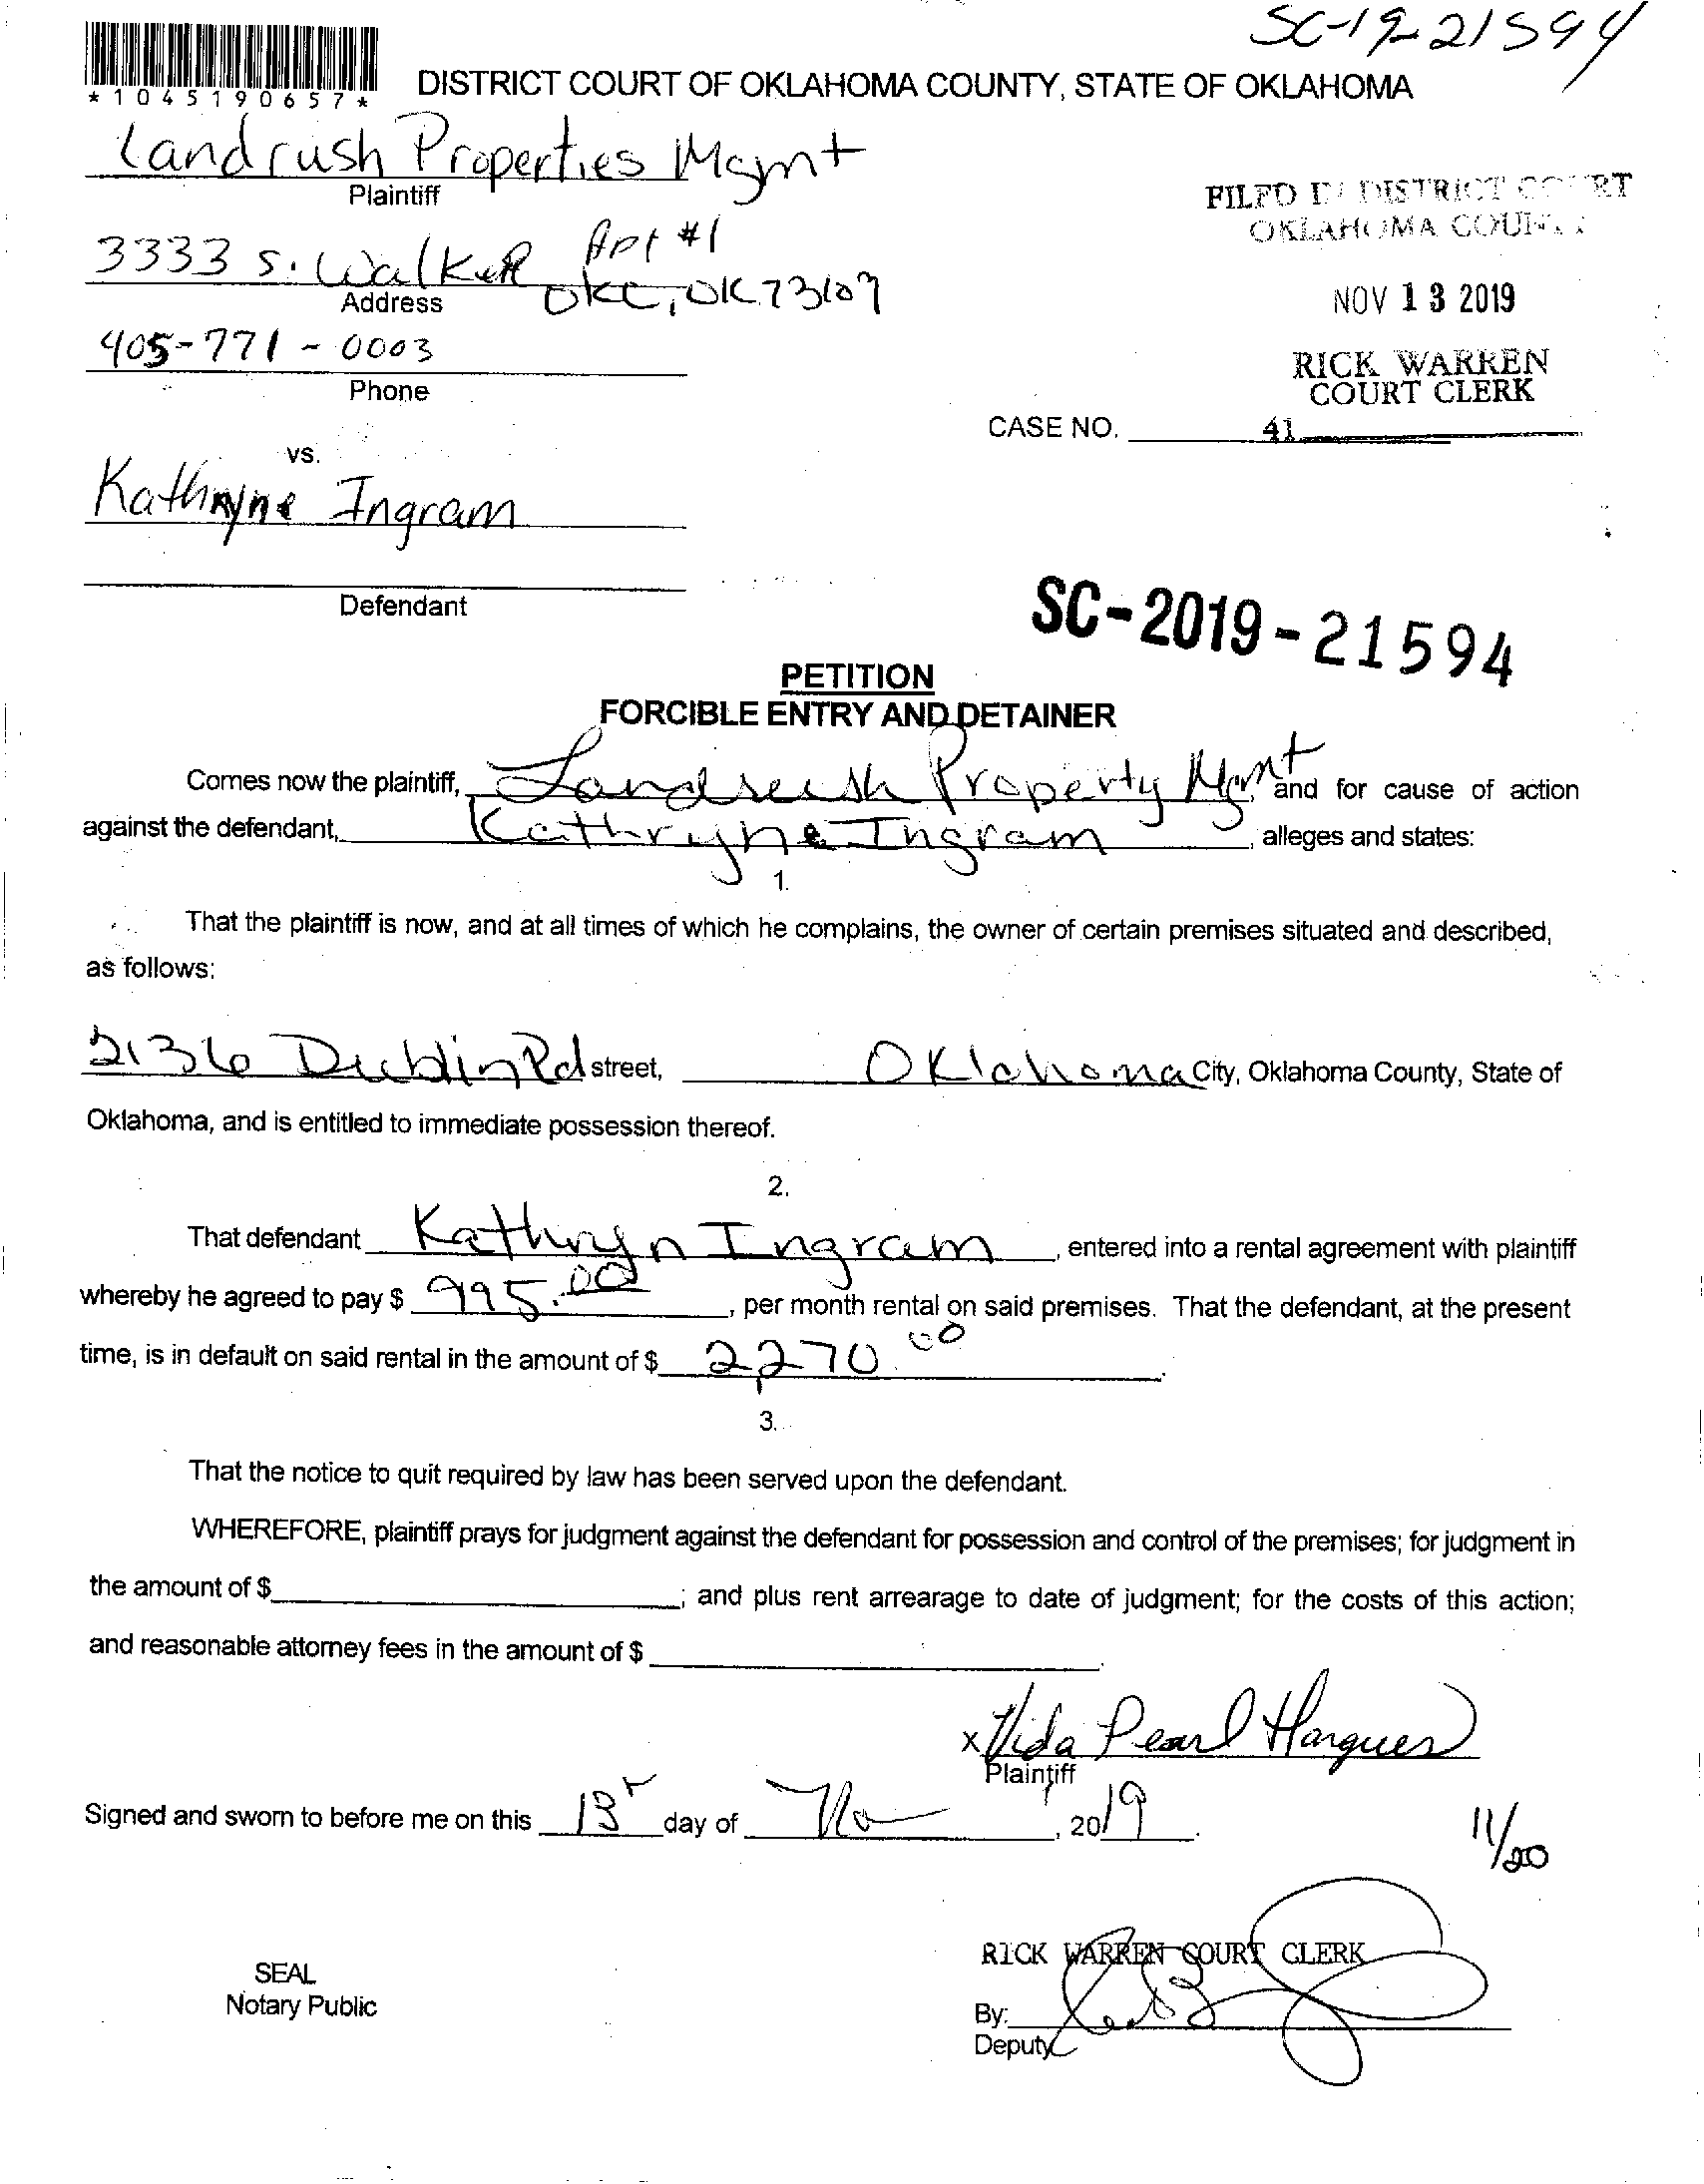 SC-19-21594
*1045190657*
DISTRICT COURT OF OKLAHOMA COUNTY, STATE OF OKLAHOMA
Landrush Properties Mgmt
Plaintiff
FILED IN DISTRICT COURT
OKLAHOMA COUNTY
3333 S. Walker Apt #1
OKC, OK 73109
Address
NOV 13 2019
405-771-0003
Phone
RICK WARREN
COURT CLERK
CASE NO. 41
vs.
Kathryne Ingram
Defendant
SC-2019-21594
PETITION
FORCIBLE ENTRY AND DETAINER
Comes now the plaintiff, Landrush Property Mgmt and for cause of action
against the defendant, Kathryne Ingram, alleges and states:
1.
That the plaintiff is now, and at all times of which he complains, the owner of certain premises situated and described,
as follows:
2136 Dublin Rd street, Oklahoma City, Oklahoma County, State of
Oklahoma, and is entitled to immediate possession thereof.
2.
That defendant Kathryn Ingram, entered into a rental agreement with plaintiff
whereby he agreed to pay $ 995.00, per month rental on said premises. That the defendant, at the present
time, is in default on said rental in the amount of $ 2,270.00.
3.
That the notice to quit required by law has been served upon the defendant.
WHEREFORE, plaintiff prays for judgment against the defendant for possession and control of the premises; for judgment in
the amount of $ ; and plus rent arrearage to date of judgment; for the costs of this action;
and reasonable attorney fees in the amount of $ .
x Vida Pearl Hargues
Plaintiff
Signed and sworn to before me on this 13 day of Nov, 2019.
11/20
RICK WARREN COURT CLERK
SEAL
Notary Public
By:
Deputy